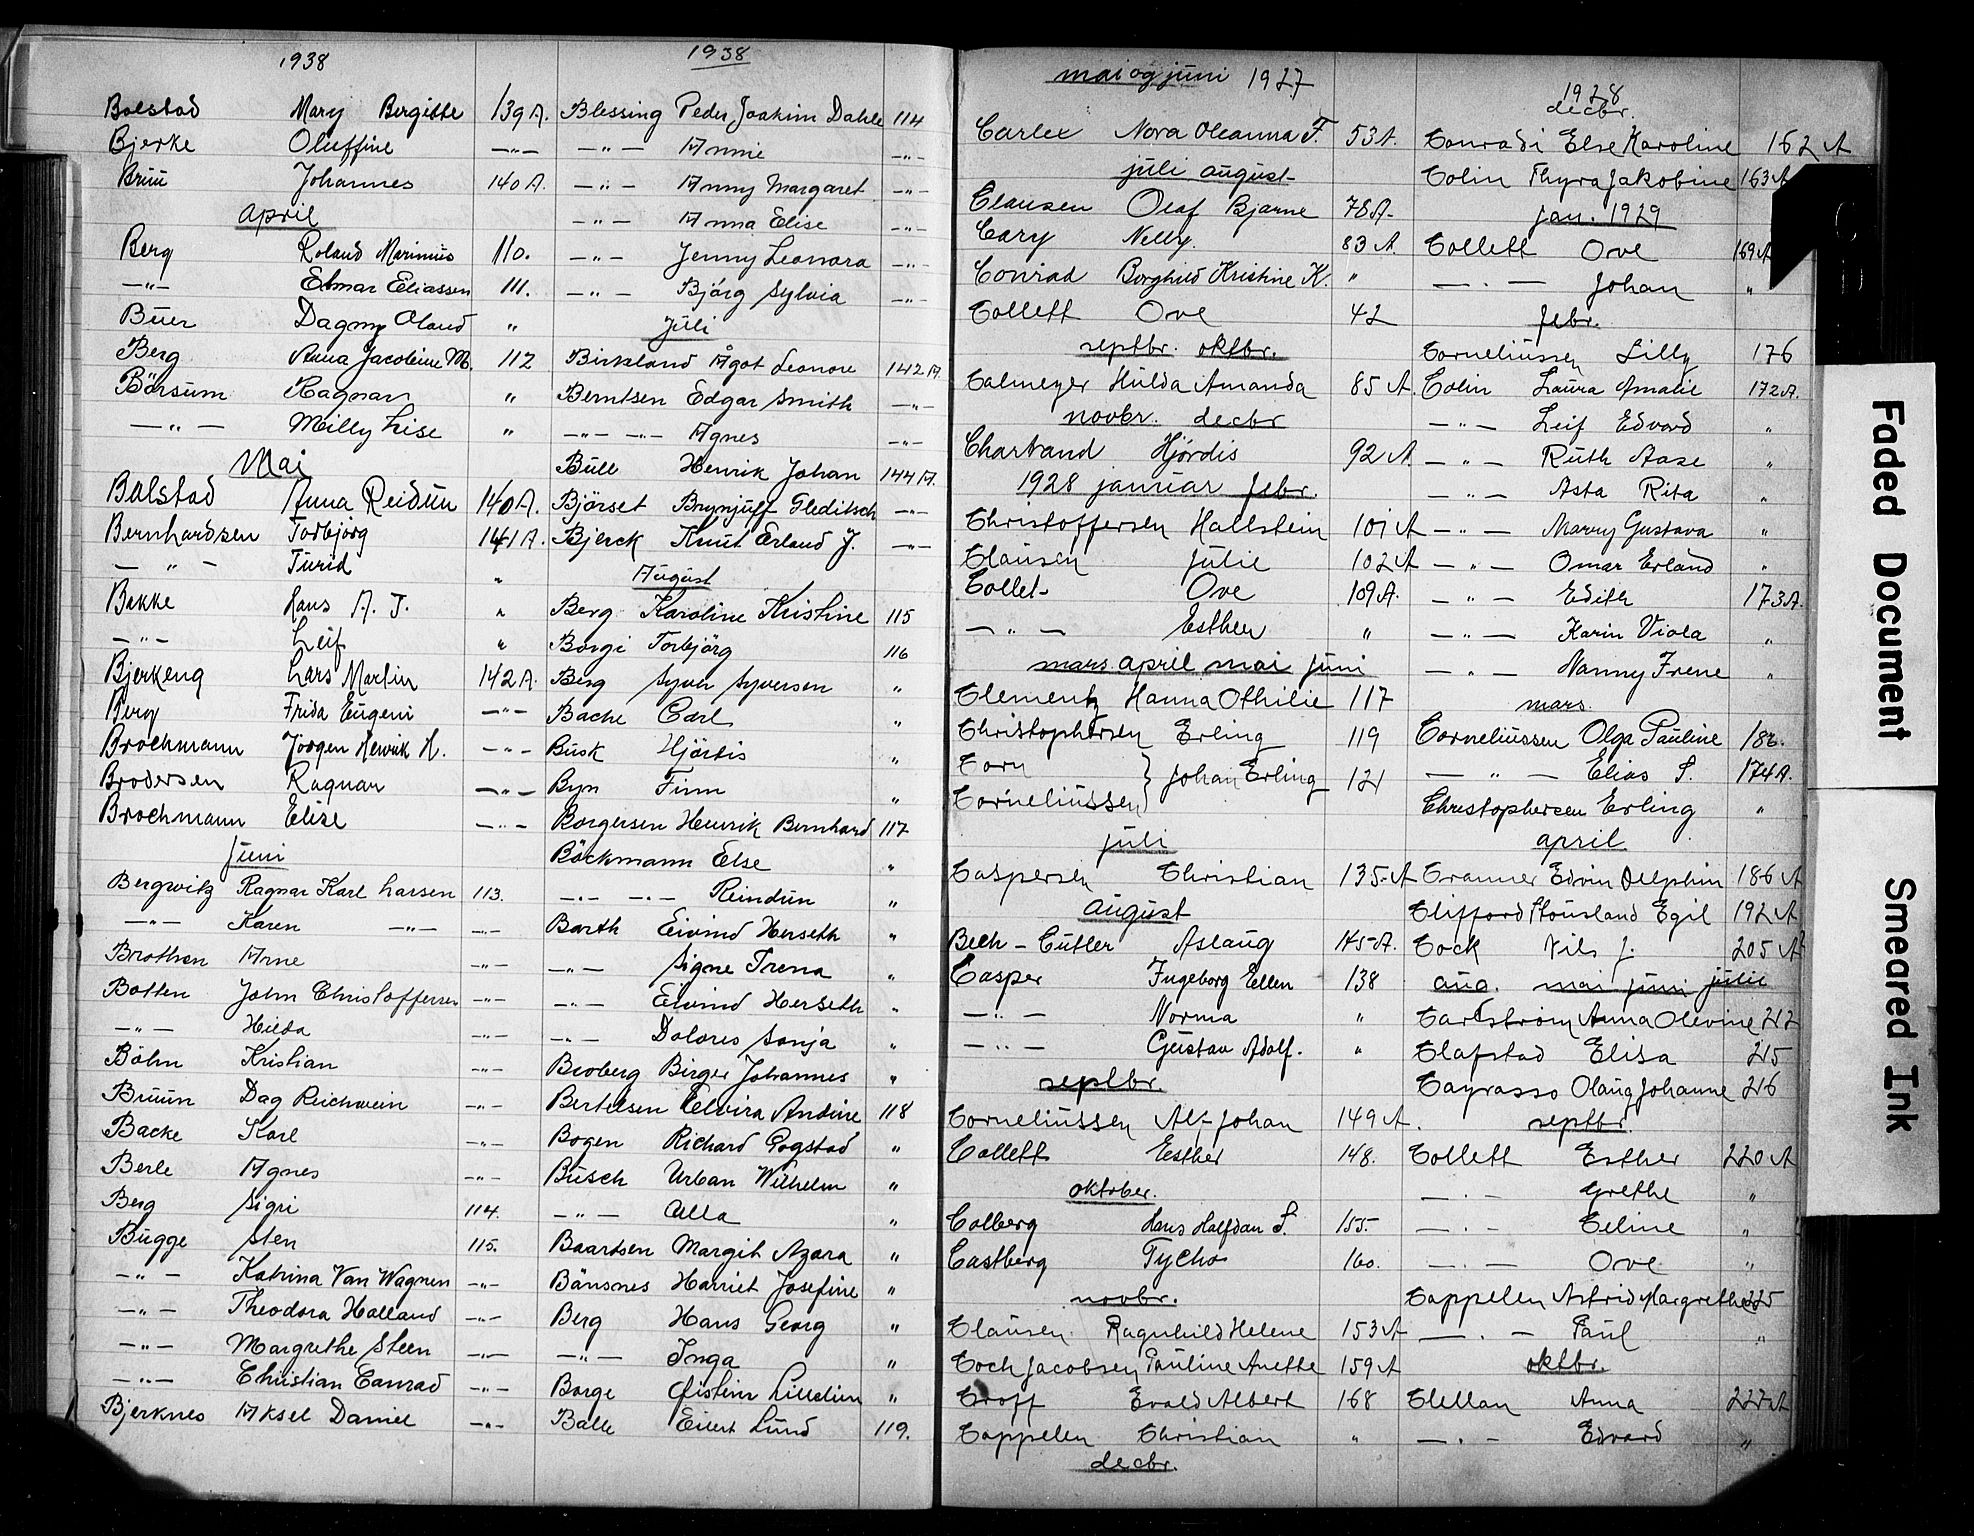 1938
Bolstad Mary Bergitte 139 A.
Bjerke Oluffine —„—
Bruu Johannes 140 A.
April
Berg Roland Marinius 110.
—„— Elmar Eliassen 111.
Buer Dagny Oland „
Berg Anna Jacobine M. 112
Börsum Ragnar „
—„— Milly Lise „
Mai
Bolstad Anna Reidun 140 A.
Bernhardsen Torbjörg 141 A.
—„— Turid „
Bakke Hans A. J. „
—„— Leif „
Bjerkeng Lars Martin 142 A.
Berg Frida Eugeni —„—
Brochmann Jörgen Henrik H. —„—
Brodersen Ragnar —„—
Brochmann Elise —„—
Juni
Bergwitz Ragnar Karl Larsen 113.
—„— Karen —„— —„—
Brothen Arne —„—
Botten John Christoffersen —„—
—„— Hilda —„—
Böhn Kristian —„—
Bruun Dag Reichwein —„—
Backe Karl —„—
Berle Agnes —„—
Berg Sigri 114.
Bugge Sten 115.
—„— Katrina Van Wagnen —„—
—„— Theodora Holland —„—
—„— Margrethe Steen —„—
—„— Christian Conrad —„—
Bjerknes Aksel Daniel —„—
1938
Blessing Peder Joakim Dahle 114
—„— Annie —„—
—„— Anny Margaret —„—
—„— Anna Elise —„—
—„— Jenny Leonora —„—
—„— Bjørg Sylvia —„—
Juli
Birkeland Ågot Leonore 142 A.
Berntsen Edgar Smith —„—
—„— —„— Agnes —„—
Bull Henrik Johan 144 A.
Björset Brynjulf Gleditsch —„—
Bjerck Knut Erland J. —„—
August
Berg Karoline Kristine 115
Borgi Torbjörg 116
Berg Syver Syversen „
Bache Carl „
Busk Hjördis „
Byn Finn „
Borgersen Henrik Bernhard 117
Böckmann Else „
—„— —„— Reindun „
Barth Eivind Herseth „
—„— Signe Irena „
—„— Eivind Herseth „
—„— Dolores Sonja „
Broberg Birger Johannes „
Bertelsen Elvira Andine 118
Bogen Richard Gogstad „
Busch Urban Wilhelm „
—„— Alla „
Baartsen Margit Azora „
Bånsnes Harriet Josefine „
Berg Hans Georg „
—„— Inga „
Borge Øistein Lillelien „
Balle Eilert Lund 119.
mai og juni 1927
Carlex Nora Oleanna F. 53 A.
juli august
Clausen Olaf Bjarne 78 A.
Cary Nelly. 83 A.
Conrad Borghild Kristine K. „
Collett Ove 42
septbr. oktbr.
Calmeyer Hulda Amanda 85 A.
novbr. decbr
Chartrand Hjördis 92 A.
1928 januar febr.
Christoffersen Hallstein 101 A
Clausen Julie 102 A
Collet Ove 109 A.
—„— Esther „
mars april mai juni
Clementz Hanna Othilie 117
Christophersen Erling 119
Corn } Johan Erling 121
Corneliussen
juli
Caspersen Christian 135 A
august
Bech - Cutler Aslaug 145 A.
Casper Ingeborg Ellen 138
—„— Norma „
—„— Gustav Adolf. „
septbr.
Corneliussen Alf Johan 149 A.
Collett Esther 148.
oktober.
Colberg Hans Halfdan S. 155.
Castberg Tycho 160.
novbr.
Clausen Ragnhild Helene 153 A
Coch Jacobsen Pauline Anette 159 A
Croff Evald Albert 168
Cappelen Christian „
decbr.
1928
decbr.
Conradi Else Karoline 162 A
Colin Thyra Jakobine 163 A
jan. 1929
Collett Ove 169 A
—„— Johan „
febr.
Corneliussen Lilly 176
Colin Laura Amalie 172 A.
—„— Leif Edvard „
—„— Ruth Aase „
—„— Asta Rita „
—„— Marry Gustava „
—„— Omar Erland „
—„— Edith 173 A.
—„— Karin Viola „
—„— Nanny Irene „
mars.
Corneliussen Olga Pauline
—„— Elias S. 174 A.
Christophersen Erling „
april
Cranner Edvin Delphin 186 A
Clifford Stousland Egil 192 A
Cock Nils J. 205 A
aug. mai juni juli
Carlström Anna Olevine 212
Clafstad Elisa 215
Cayrasso Olaug Johanne 216
septbr.
Collett Esther 220 A
—„— Grethe „
—„— Eline „
—„— Ove „
Cappelen Astrid Margrethe 225
—„— Paul „
oktbr.
Clellan Anna 227 A
—„— Edvard „
Faded Document
Smeared Ink